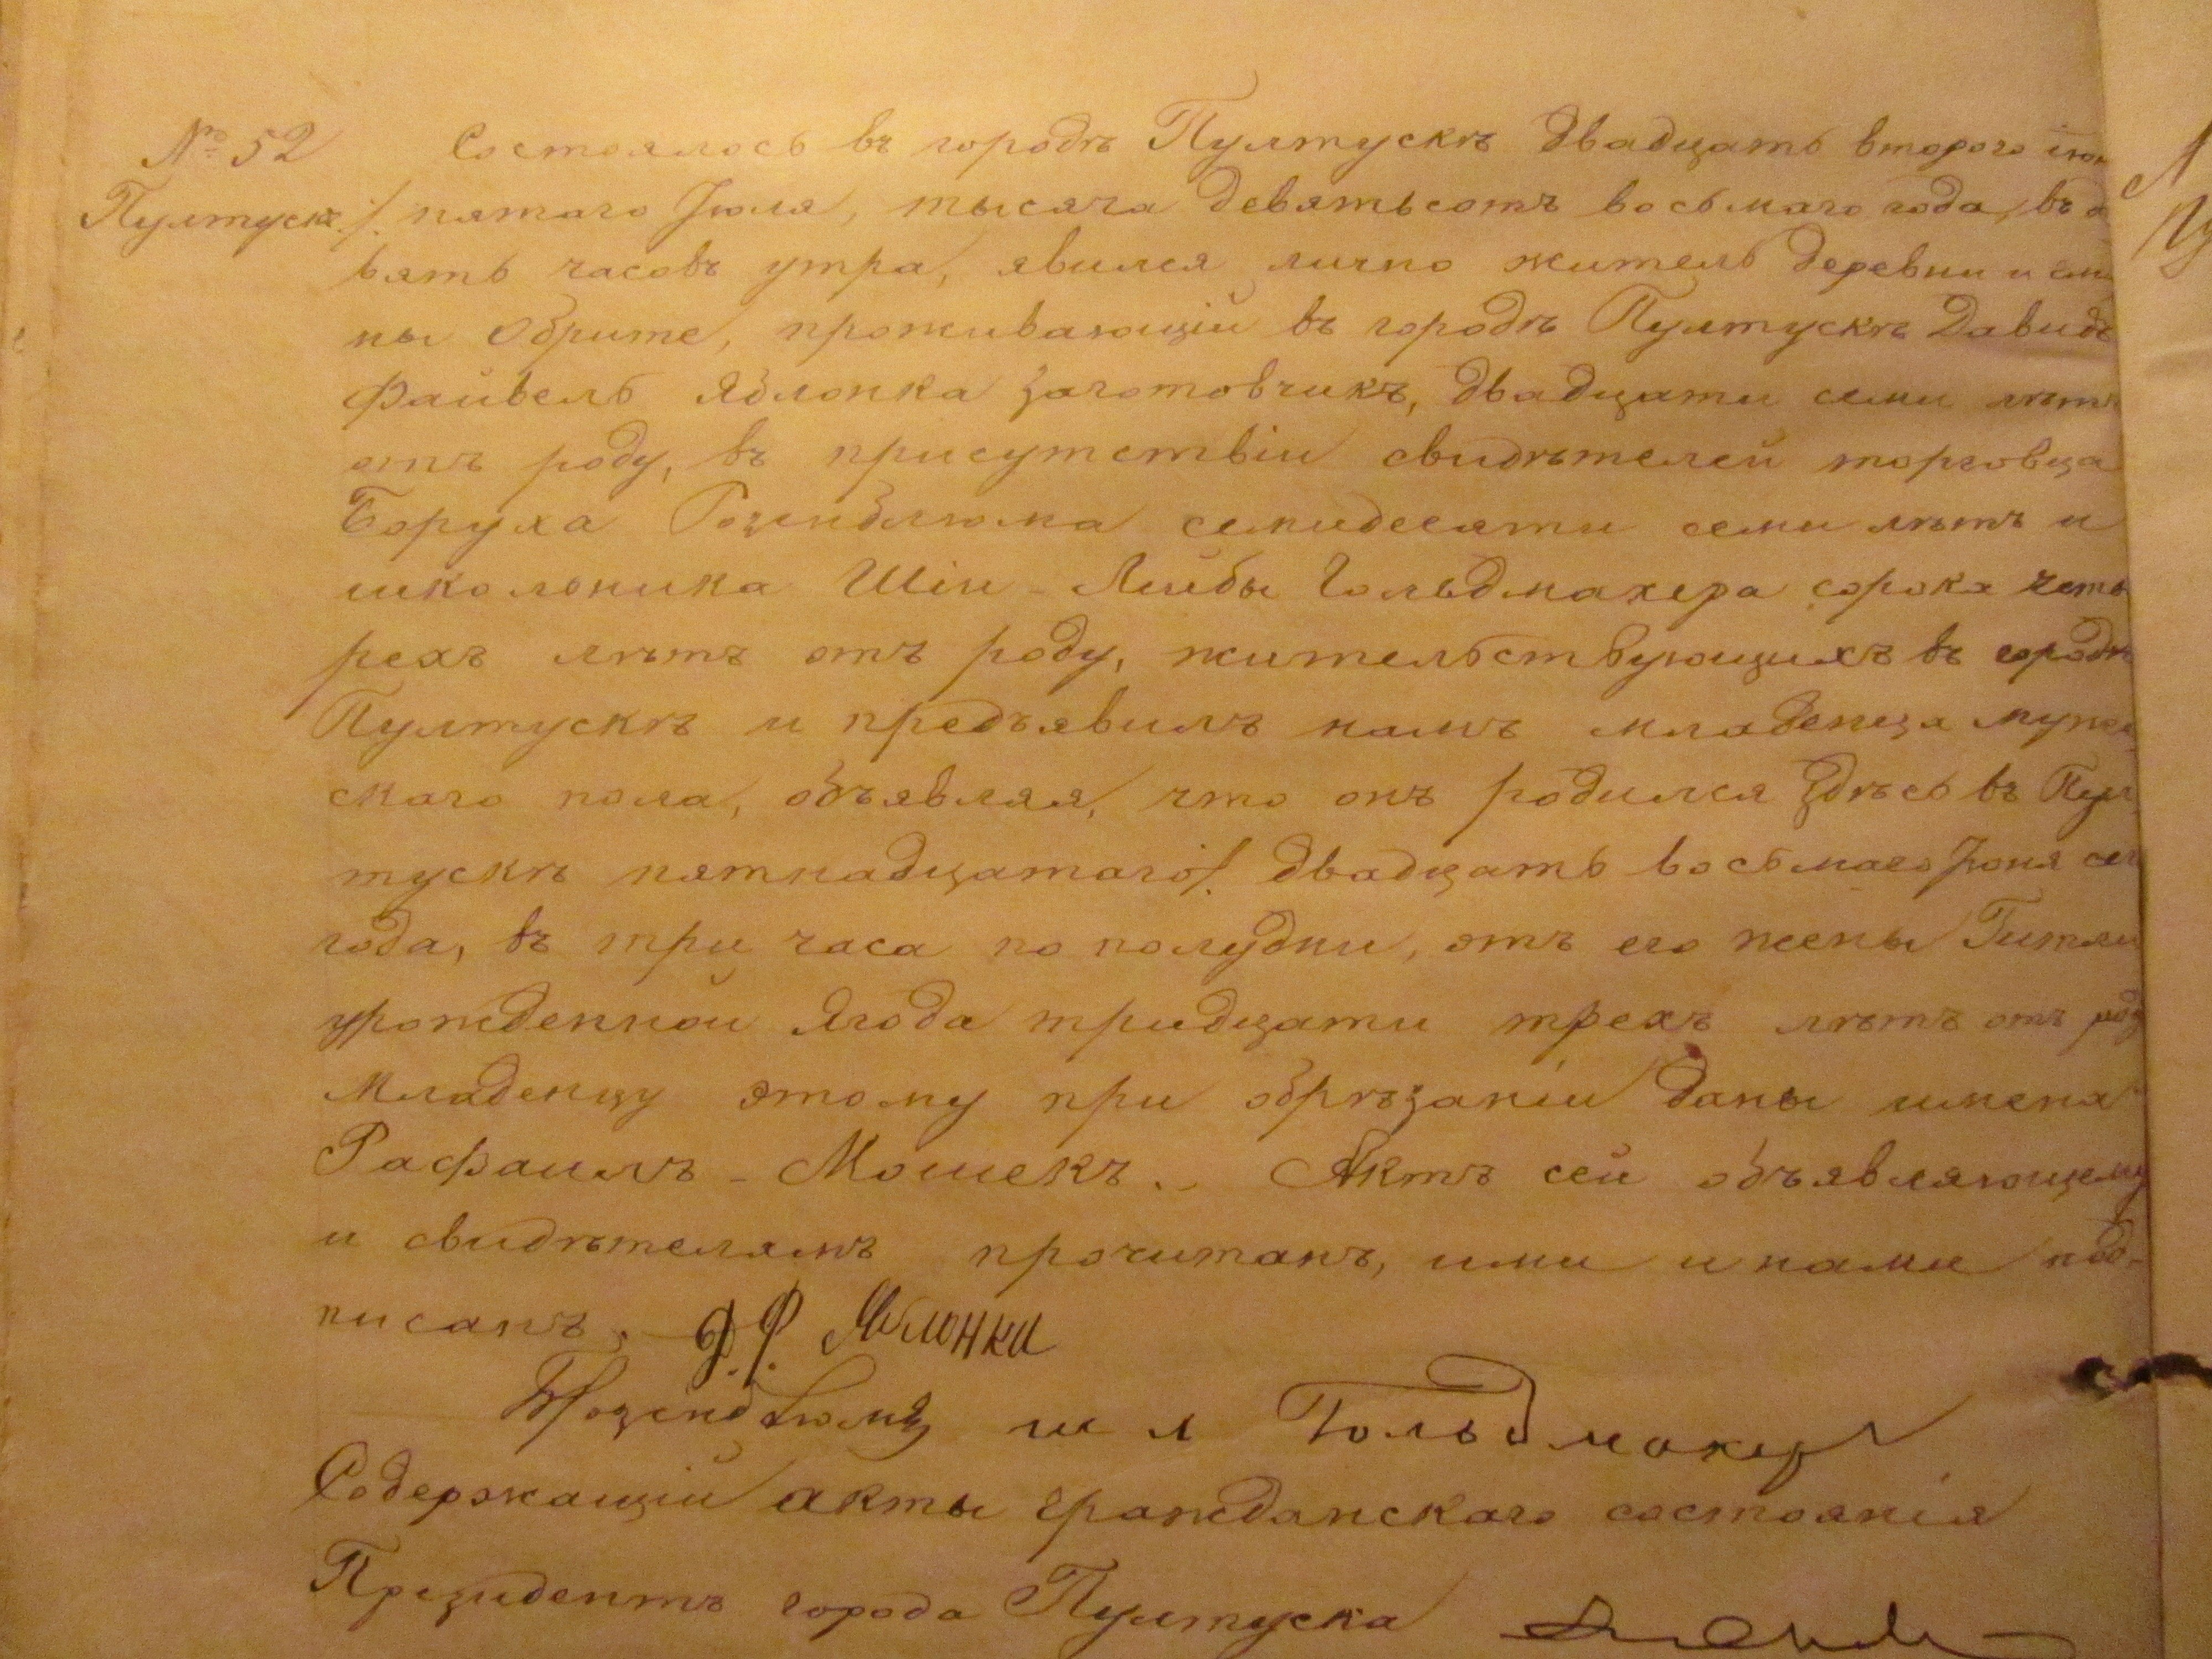 № 52
Пултускъ
Состоялось въ городѣ Пултускѣ двадцать второго Iюн
/. пятаго Iюля, тысяча девятьсотъ восьмаго года, въ д
вять часовъ утра, явился лично житель деревни и гми
ны Обрите, проживающiй въ городѣ Пултускѣ Давидъ
Файвель Яблонка заготовчикъ, двадцати семи лѣтъ
отъ роду, въ присутствiи свидѣтелей торговца
Боруха Розенблюма семидесяти семи лѣтъ и
школьника Шiи-Лейбы Гольдмахера сорока четы
рехъ лѣтъ отъ роду, жительствующихъ въ городѣ
Пултускѣ и предъявилъ намъ младенца муже
скаго пола, объявляя, что онъ родился здѣсь въ Пул
тускѣ пятнадцатаго /. двадцать восьмаго Iюня сег
года, въ три часа по полудни, отъ его жены Гитли
урожденной Ягода тридцати трехъ лѣтъ отъ роду
Младенцу этому при обрѣзанiи даны имена
Рафаилъ-Мошекъ. Актъ сей объявляющему
и свидѣтелямъ прочитанъ, ими и нами под-
писанъ. Д.Ф. Яблонка
БРозенблюмъ ш л Гольдмахер
Содержащiй акты гражданскаго состоянiя
Президентъ города Пултуска